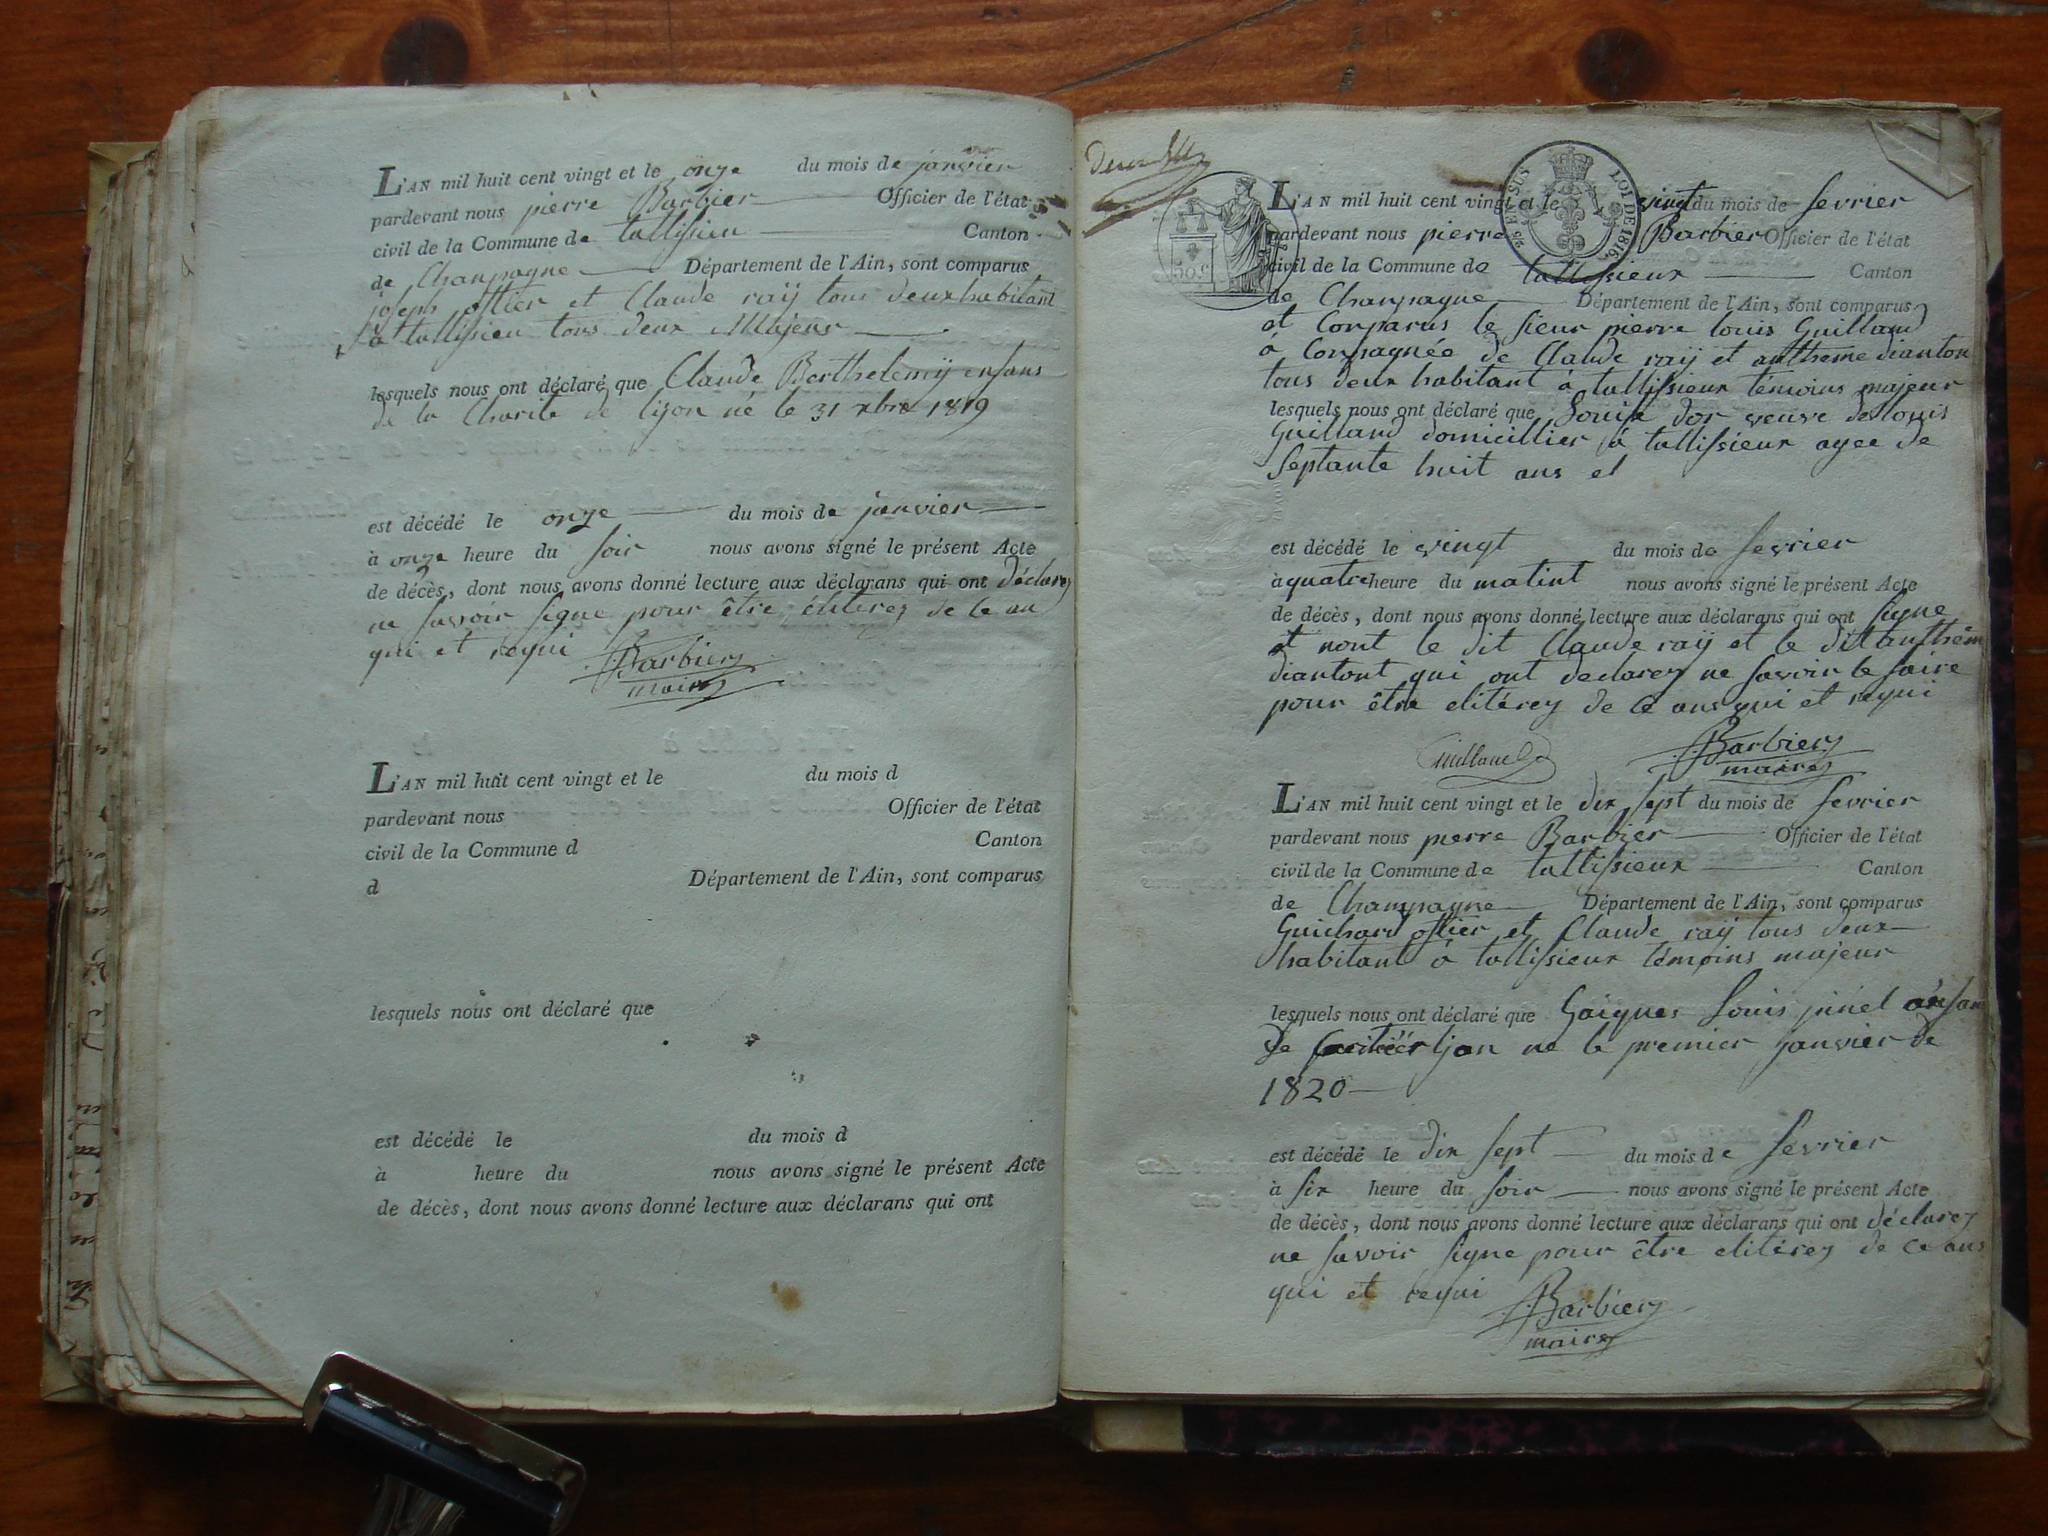 L'AN mil huit cent vingt et le onze du mois de janvier
pardevant nous pierre Barbier Officier de l'état
civil de la Commune de tallissieu Canton
de Champagne Département de l'Ain, sont comparus
joseph ostier et Claude raÿ tous deux habitant
à tallissieu tous deux Majeur
lesquels nous ont déclaré que Claude Berthelemÿ enfans
de la Charite de lijon né le 31 xbre 1819
est décédé le onze du mois de janvier
à onze heure du soir nous avons signé le présent Acte
de décès, dont nous avons donné lecture aux déclarans qui ont déclarez
ne savoir signe pour être éliterez de ce an
qui et requi
Barbier
maire
L'AN mil huit cent vingt et le du mois d
pardevant nous Officier de l'état
civil de la Commune d Canton
d Département de l'Ain, sont comparus
lesquels nous ont déclaré que
est décédé le du mois d
à heure du nous avons signé le présent Acte
de décès, dont nous avons donné lecture aux déclarans qui ont
25 EN SUS LOI DE 1816
50c.
L'AN mil huit cent vingt et le vingt du mois de fevrier
pardevant nous pierre Barbier Officier de l'état
civil de la Commune de tallissieux Canton
de Champagne Département de l'Ain, sont comparus
et Comparus le sieur pierre louis Guilland
à Compagnée de Claude raÿ et antheme dianton
tous deux habitant à tallissieux témoins majeur
lesquels nous ont déclaré que Louise dor veuve de louis
Guilland domicillier à tallissieux agee de
septante huit ans et
est décédé le vingt du mois de fevrier
à quatre heure du matint nous avons signé le présent Acte
de décès, dont nous avons donné lecture aux déclarans qui ont signe
et nont le dit Claude raÿ et le dit anthem
diantont qui ont declarez ne savoir le faire
pour être elitérez de ce ans qui et requi
Guilland
Barbier
maire
L'AN mil huit cent vingt et le dix sept du mois de fevrier
pardevant nous pierre Barbier Officier de l'état
civil de la Commune de tallissieux Canton
de Champagne Département de l'Ain, sont comparus
Guichard ostier et Claude raÿ tous deux
habitant à tallissieux témoins majeur
lesquels nous ont déclaré que Louis pinel enfan
de lyon ne le premier janvier de
1820
est décédé le dix sept du mois de fevrier
à six heure du soir nous avons signé le présent Acte
de décès, dont nous avons donné lecture aux déclarans qui ont déclarez
ne savoir signe pour être elitérez de ce ans
qui et requi
Barbier
maire